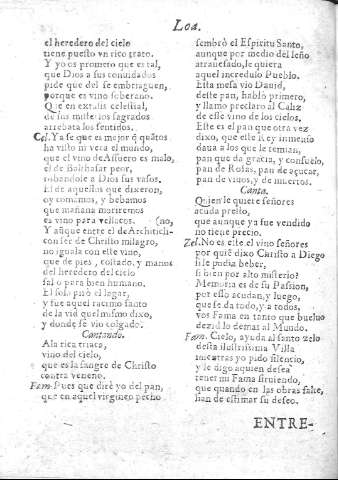 Loa.
el heredero del cielo
tiene puesto vn rico trato.
Y yo os prometo que es tal,
que Dios a sus conuidados
pide que del se embriaguen,
porque es vino soberano.
Que en extasis celestial,
de sus misterios sagrados
arrebata los sentidos.
Cel. Ya se que es mejor q̃ quãtos
ha visto ni vera el mundo,
que el vino de Assuero es malo,
el de Balthasar peor,
robandole a Dios sus vasos.
El de aquellos que dixeron,
oy comamos, y bebamos
que mañana moriremos
es vino para vellacos. (no,
Y aũque entre el de Architicli-
con ser de Christo milagro,
no iguala con este vino,
que de pies, costado, y manos
del heredero del cielo
salio para bien humano.
El solo pisò el lagar,
y fue aquel racimo santo
de la vid que l mismo dixo,
y donde se vio colgado.
Cantando.
A la rica triaca,
vino del cielo,
que es la sangre de Christo
contra veneno.
Fam. Pues que dirè yo del pan,
que en aquel virgineo pecho
sembrò el Espiritu Santo,
aunque por medio del leño
atrauesado, le quiera
aquel incredulo Pueblo.
Esta mesa vio Dauid,
deste pan, hablò primero,
y llamo preclaro al Caliz
de este vino de los cielos.
Este es el pan que otra vez
dixo, que este Rey inmenso
daua a los que le temian,
pan que da gracia, y consuelo,
pan de Rosas, pan de açucar,
pan de viuos, y de muertos.
Canta.
Quien le quiere señores
acuda presto,
que aunque ya fue vendido
no tiene precio.
Zel. No es este el vino señores
por quiẽ dixo Christo a Diego
si le podia beber,
si bien por alto misterio?
Memoria es de su Passion,
por esso acudan, y luego,
que se da todo, y a todos,
vos Fama en tanto que bueluo
dezid lo demas al Mundo.
Fam. Cielo, ayuda al santo zelo
desta ilustrissima Villa
mientras yo pido silencio,
y le digo a quien desea
tener mi Fama siruiendo,
que quando en las obras falte,
han de estimar su deseo.
ENTRE-